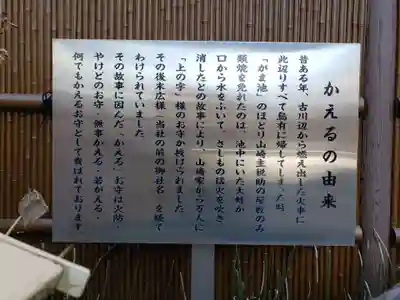 かえるの由来
昔ある年、古川辺から燃え出した火事に
此辺りすべて烏有に帰してしまった時
「がま池」のほとり山崎主税助の屋敷のみ
類焼を免れたのは、池中にいた大蛙が
口から水をふいて、さしもの猛火を吹き
消したとの故事により、山崎家から万人に
「上の字」様のお守が授けられました
その後末広様(当社の前の御社名)を経て
わけられていました
その故事に因んだ「かえる」お守は火防・
やけどのお守、無事かえる、若かえる・
何でもかえるお守として尊ばれております